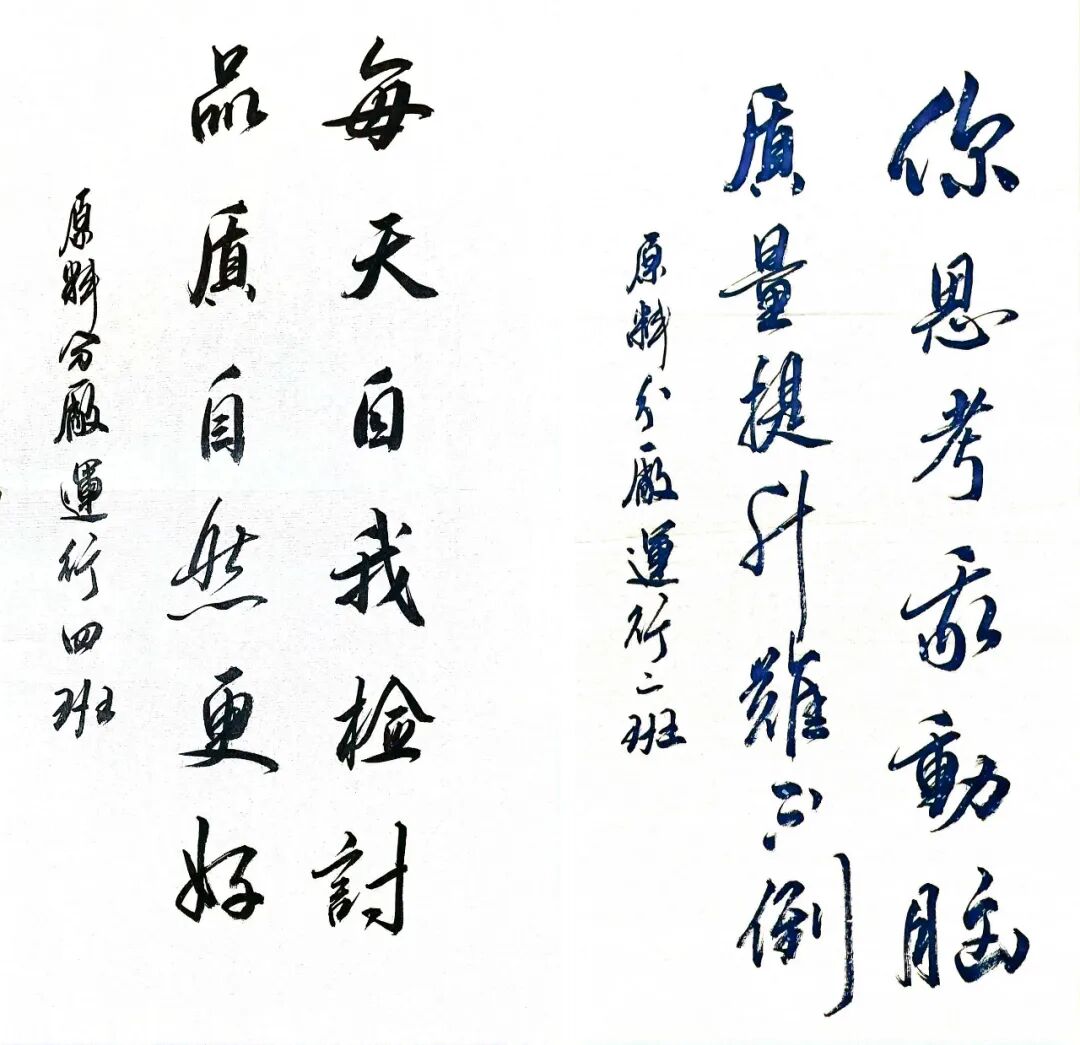 你思考我動脑
质量提升難不倒
原料分厰運行二班
每天自我檢討
品质自然更好
原料分厰運行四班